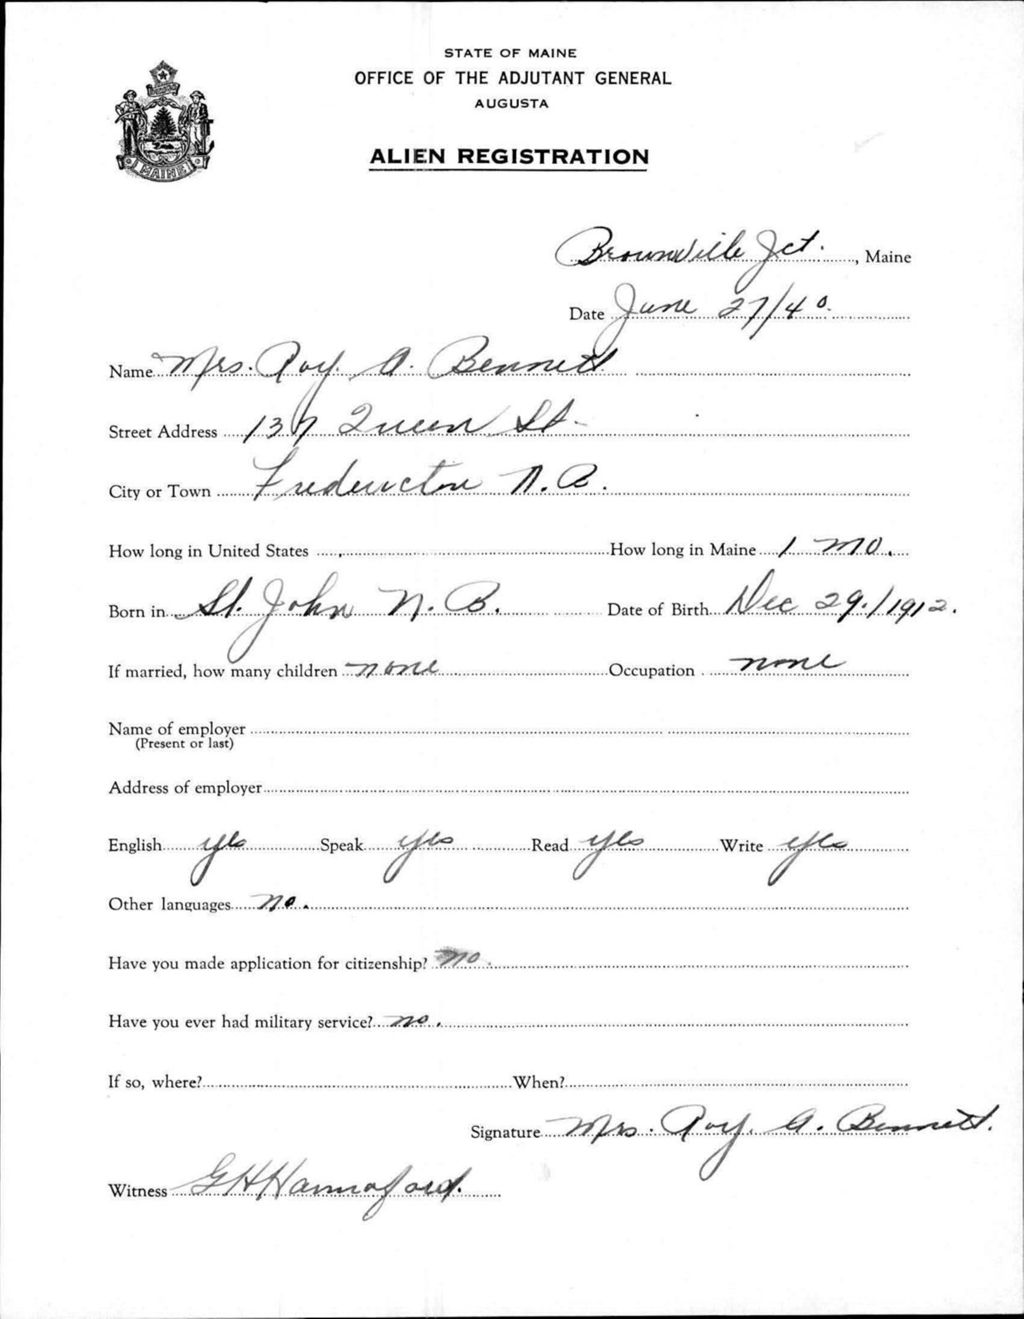 STATE OF MAINE
OFFICE OF THE ADJUTANT GENERAL
AUGUSTA
ALIEN REGISTRATION
MAINE
Brownville Jct. , Maine
Date June 27/40.
Name Mrs. Roy. A. Bennett
Street Address 137 Queen St.
City or Town Fredericton N.B.
How long in United States How long in Maine 1 mo.
Born in St. John N.B. Date of Birth Dec 29./1912.
If married, how many children none Occupation none
Name of employer
(Present or last)
Address of employer
English yes Speak yes Read yes Write yes
Other languages no.
Have you made application for citizenship? no.
Have you ever had military service? no.
If so, where? When?
Signature Mrs. Roy. A. Bennett.
Witness G H Hannaford.